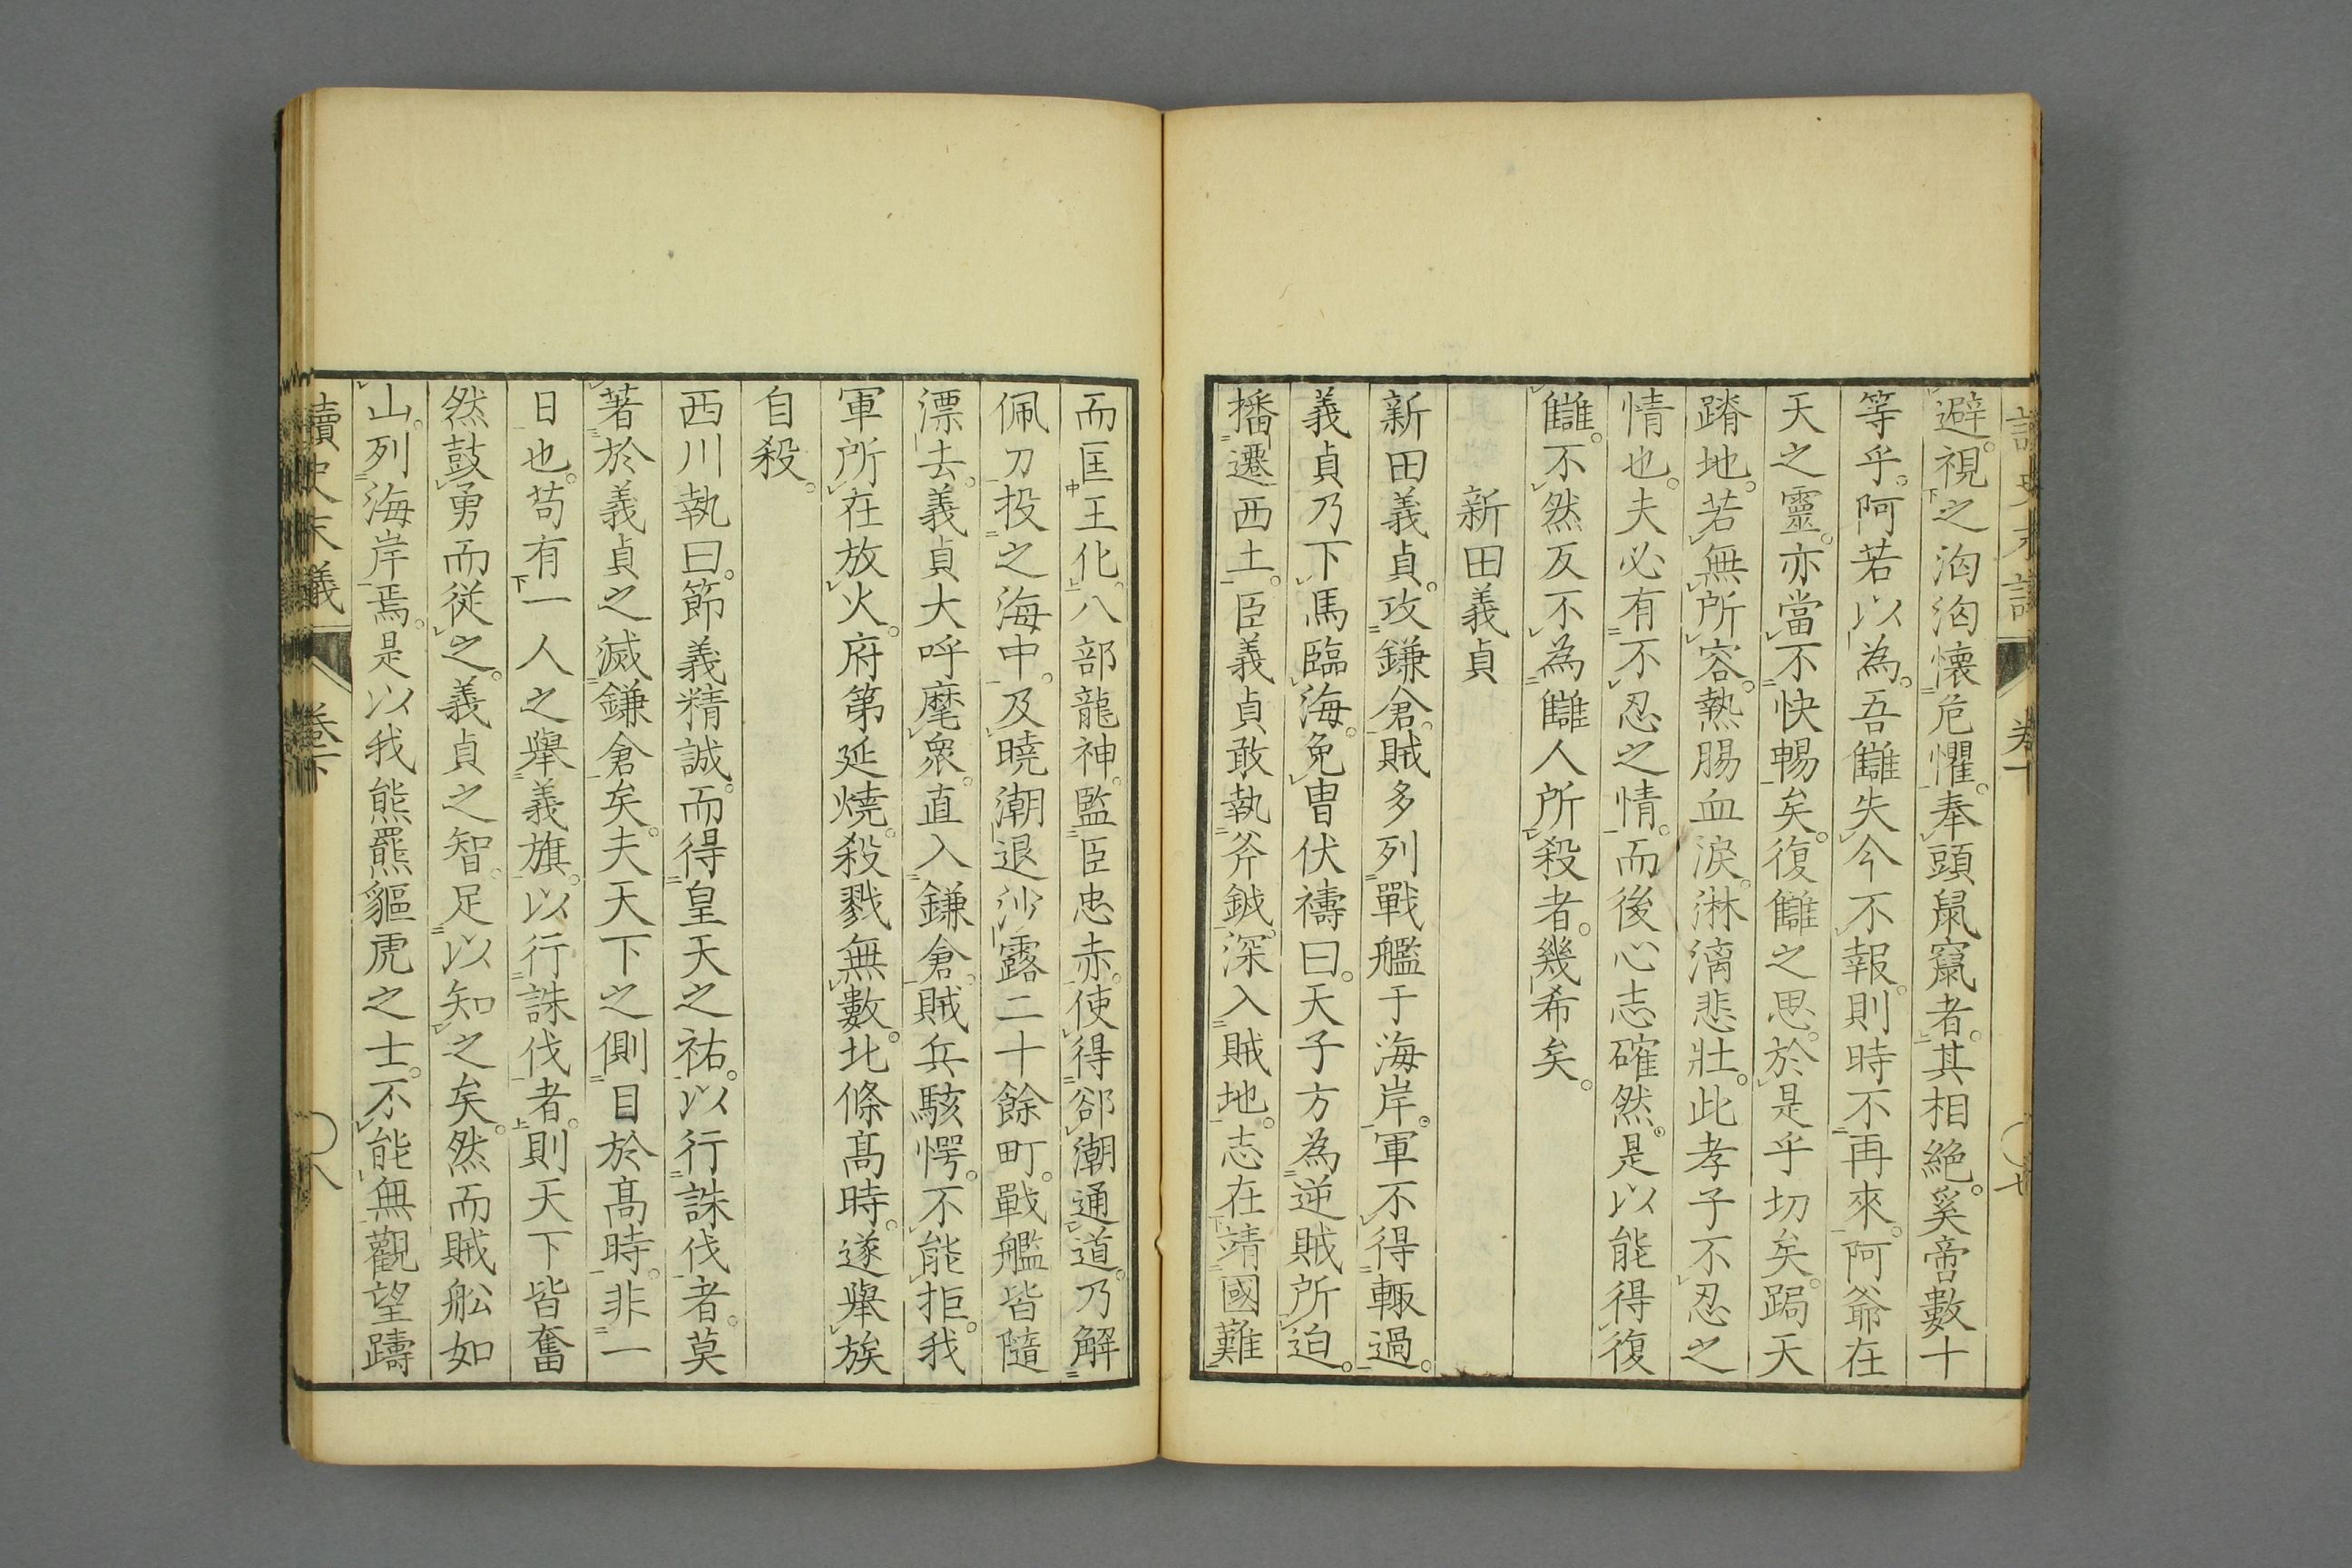 避。視之洶洶懷危懼。奉頭鼠竄者。其相絕。奚啻數十
等乎。阿若以為。吾讎失今不報。則時不再來。阿爺在
天之靈。亦當不快暢矣。復讎之思。於是乎切矣。跼天
蹐地。若無所容。熱腸血淚。淋漓悲壯。此孝子不忍之
情也。夫必有不忍之情。而後心志確然。是以能得復
讎。不然反不為讎人所殺者。幾希矣。
新田義貞
新田義貞。攻鎌倉。賊多列戰艦于海岸。軍不得輙過。
義貞乃下馬臨海。免冑伏禱曰。天子方為逆賊所迫。
播遷西土。臣義貞敢執斧鉞。深入賊地。志在靖國難
而匡王化。八部龍神。監臣忠赤。使得郤潮通道。乃解
佩刀投之海中。及曉潮退沙露二十餘町。戰艦皆隨
漂去。義貞大呼麾衆。直入鎌倉。賊兵駭愕。不能拒。我
軍所在放火。府第延燒。殺戮無數。北條髙時。遂舉族
自殺。
西川執曰。節義精誠。而得皇天之祐。以行誅伐者。莫
著於義貞之滅鎌倉矣。夫天下之側目於髙時。非一
日也。苟有一人之舉義旗。以行誅伐者。則天下皆奮
然鼓勇而從之。義貞之智。足以知之矣。然而賊舩如
山。列海岸焉。是以我熊羆貙虎之士。不能無觀望躊
讀史末議 卷下 〇八